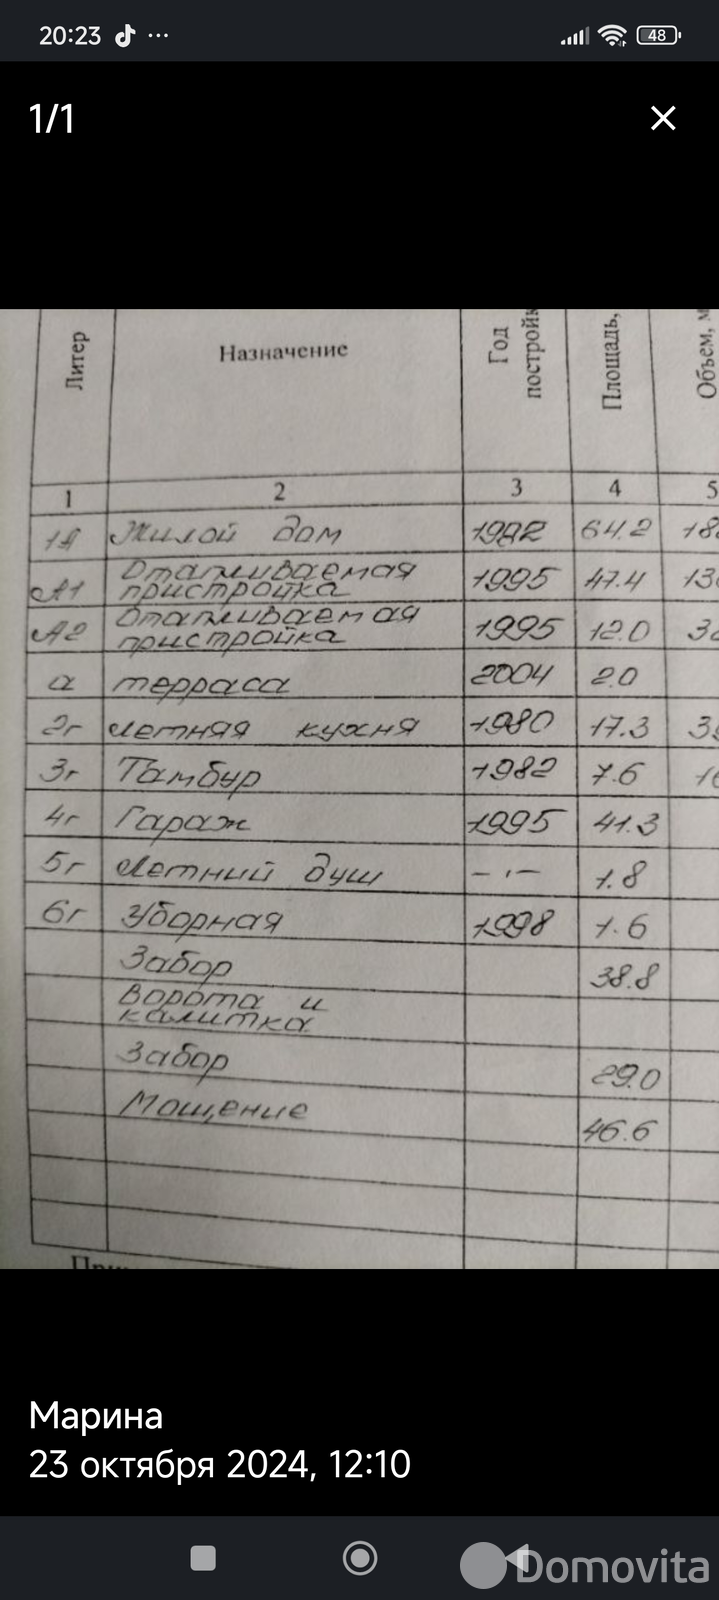 20:23 ...
48
1/1
Литер
Назначение
Год
постройк
Площадь,
Объем, м
1 2 3 4 5
1А Жилой дом 1992 64.2 18
А1 Отапливаемая пристройка 1995 47.4 13
А2 Отапливаемая пристройка 1995 12.0 3
а терраса 2004 2.0
2г летняя кухня 1980 17.3 3
3г Тамбур 1982 7.6 1
4г Гараж 1995 41.3
5г Летний душ -"- 1.8
6г Уборная 1998 1.6
Забор 38.8
Ворота и калитка
Забор 29.0
Мощение 46.6
Марина
23 октября 2024, 12:10
Domovita